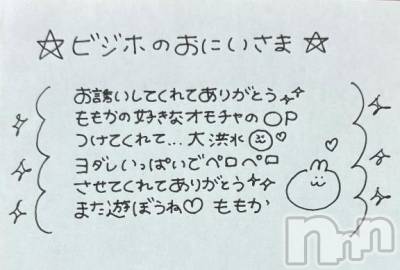 ☆ビジホのおにいさま☆
お誘いしてくれてありがとう
ももかの好きなオモチャの○P
つけてくれて...大洪水♡
ヨダレいっぱいでペロペロ
させてくれてありがとう
また遊ぼうね♡ ももか